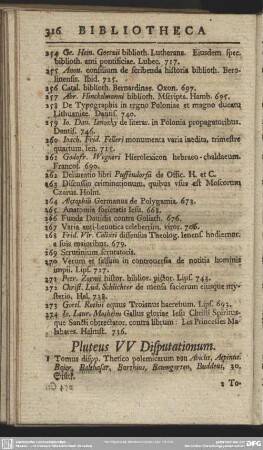 316 BIBLIOTHECA
254 Ge. Hein. Goetzii biblioth. Lutherana. Eiusdem spec.
biblioth. anti pontificiae. Lubec. 717.
255 Anon. consilium de scribenda historia biblioth. Bero-
linensis. Ibid. 725.
256 Catal. biblioth. Bernardinae. Oxon. 697.
257 Abr. Hinckelmanni biblioth. MScripta. Hamb. 695.
258 De Typographis in regno Poloniae et magno ducatu
Lithuaniae. Dantisc. 740.
259 Io. Dan. de literar. in Polonia propagatoribus.
Dantisc. 746.
260 Ioach. Frid. Felleri monumenta varia inedita, trimestre
quartum. Ien. 715.
261 Godofr. Wegneri Hierolexicon hebraeo-chaldaeum.
Francof. 690.
262 Delineatio libri Puffendorfii de Offic. H. et C.
263 Discussio criminationum, quibus usus est Moscorum
Czarus. Holm.
264 Germanus de Polygamia. 673.
265 Anatomia societatis Iesu. 668.
266 Funda Davidis contra Goliath. 676.
267 Varia anti-henotica celebrrim. viror. 706.
268 Frid. Vlr. Calixti dissensus Theolog. Ienens. hodiernor.
a suis maioribus. 679.
269 Scrutinium scrutatoris.
270 Verum et falsum in controversia de notitia hominis
impii. Lips. 727.
271 Petr. Zornii histor. biblior. pictor. Lips. 743.
272 Christ. Lud. Schlichter de mensa facierum eiusque my-
sterio. Hal. 738.
273 Gottl. Rothii equus Troianus haereseum. Lips. 693.
274 Io. Laur. Moshemii Gallus gloriae Iesu Christi Spiritus-
que Sancti obtrectator, contra librum: Les Princesses Ma-
labares. Helmst. 736.
Pluteus VV Disputationum.
1 Tomus disp. Thetico polemicarum von Abicht, Aepinus,
Baier, Balthasar, Barthius, Baumgarten, Buddeus, 30,
Stück.
2 To-